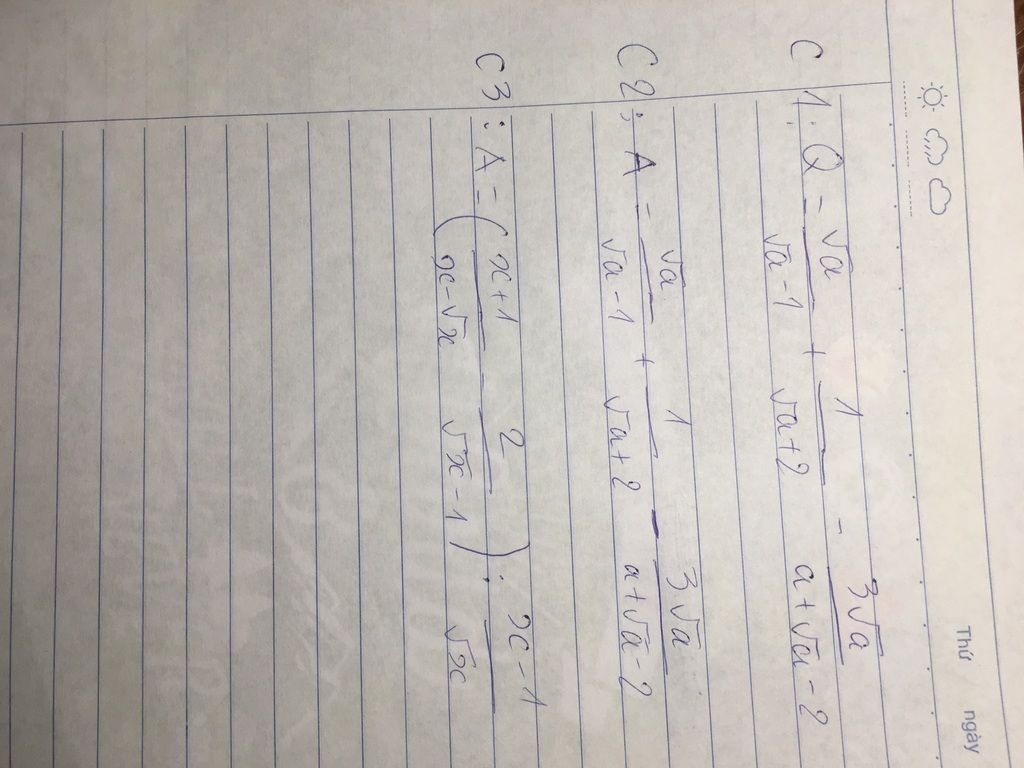 Thứ ngày
C1: Q = √a/(√a-1) + 1/(√a+2) - 3√a/(a+√a-2)
C2: A = √a/(√a-1) + 1/(√a+2) - 3√a/(a+√a-2)
C3: A = ((x+1)/(x-√x) - 2/(√x-1)) : (x-1)/√x